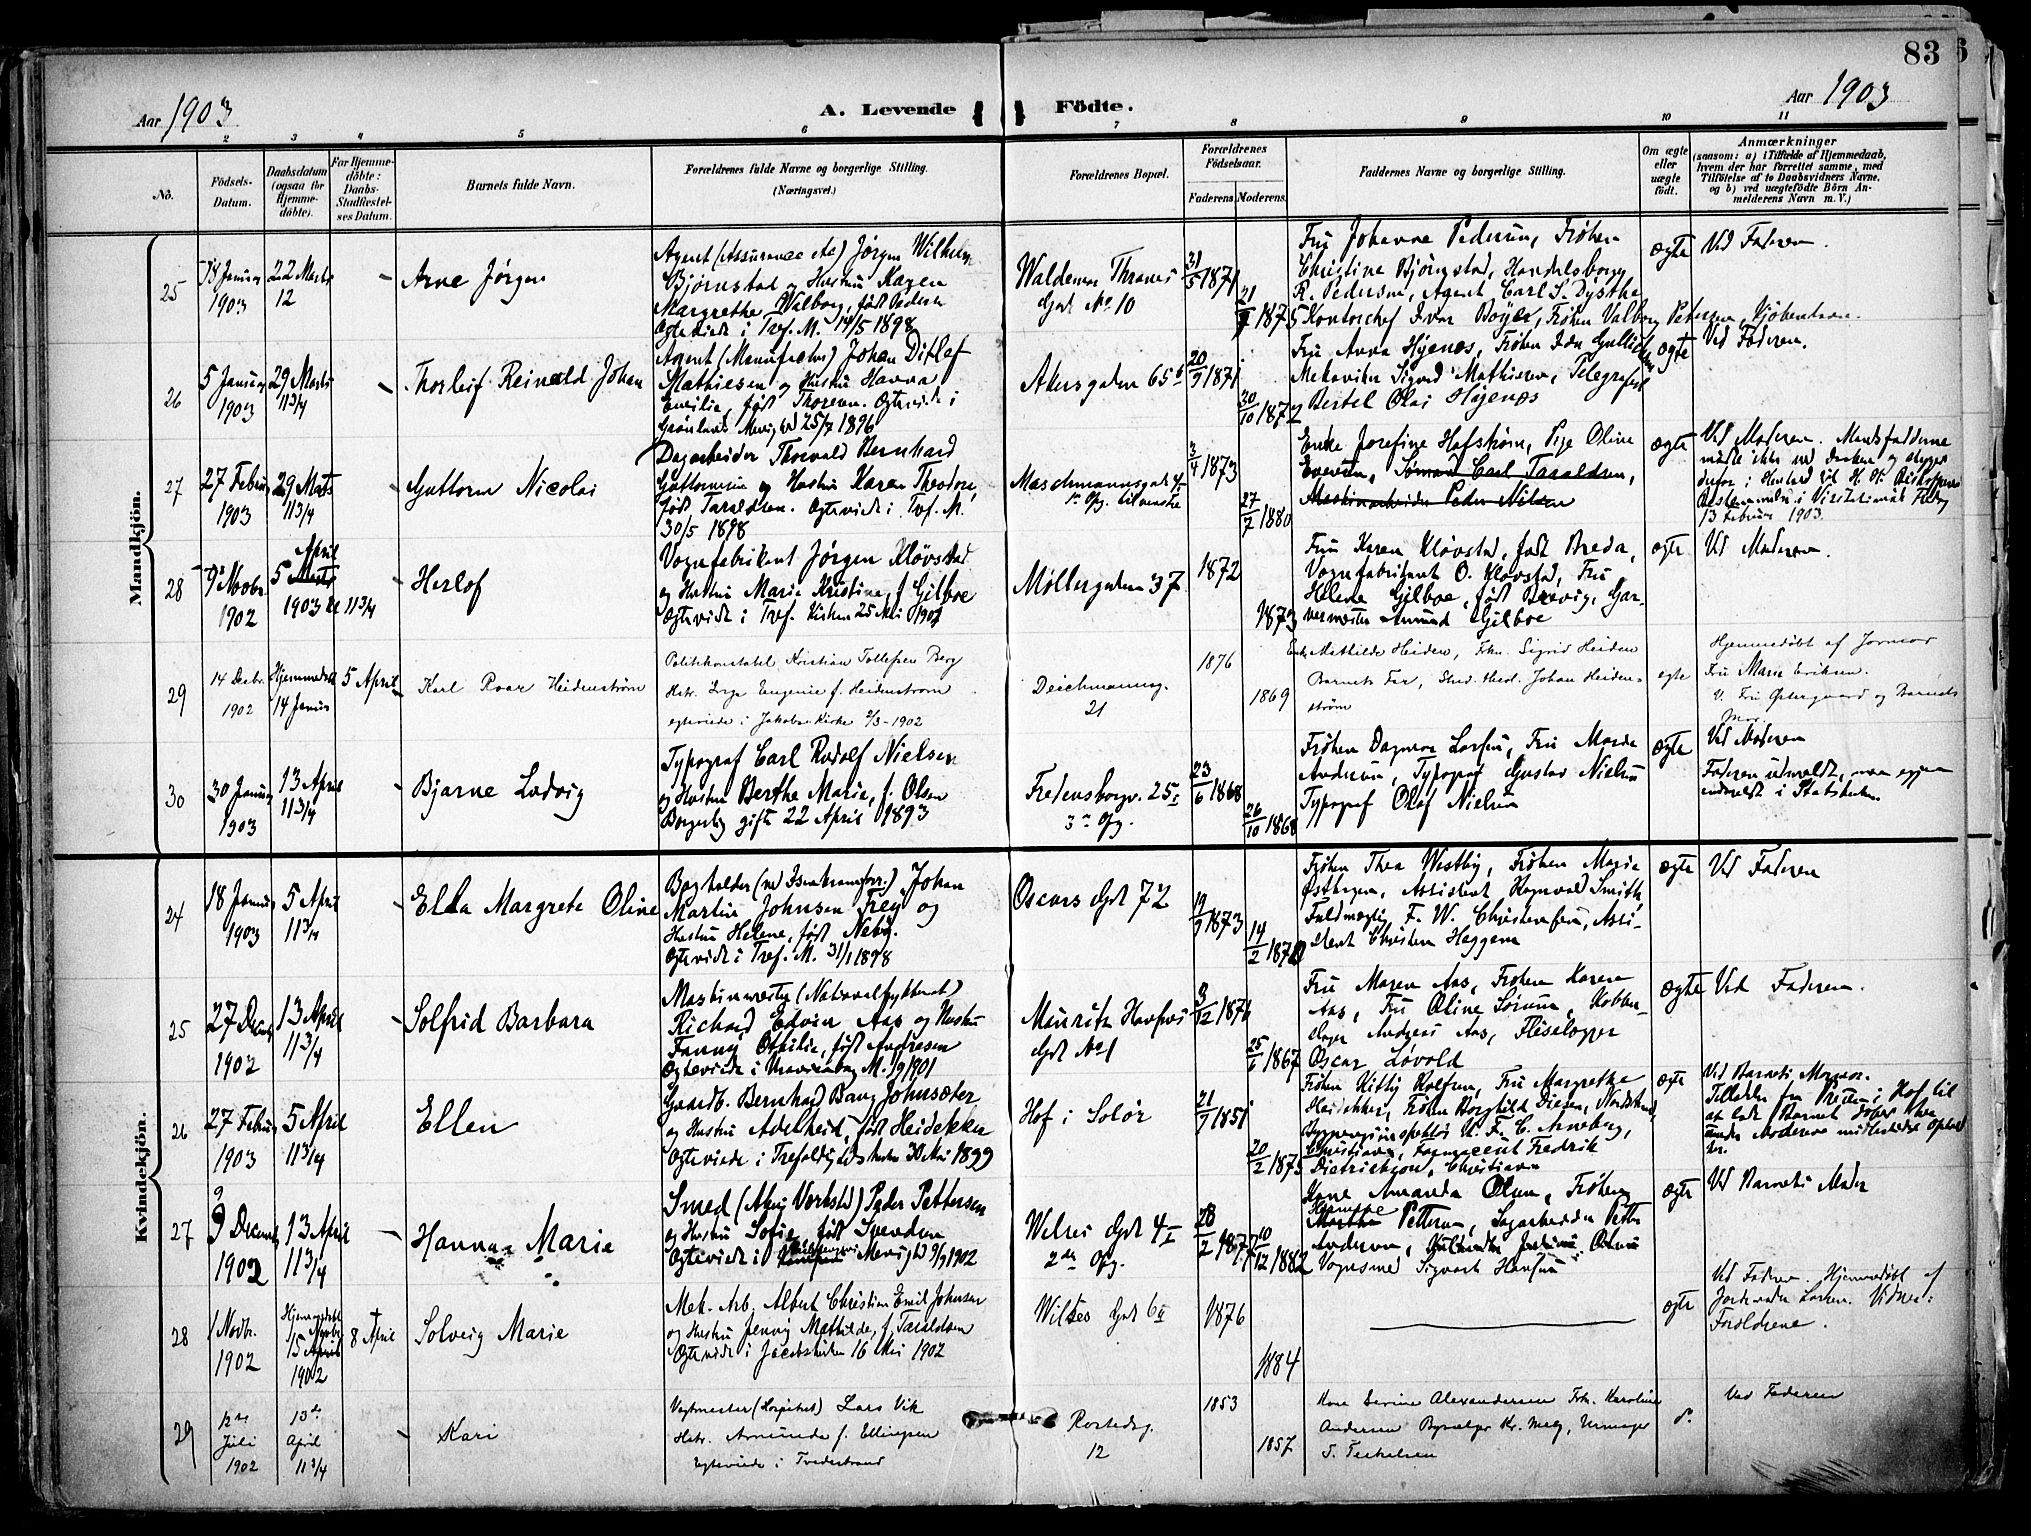 83
Aar 1903
A. Levende Födte.
Aar 1903
2 3 4 5 6 7 8 9 10 11
No.
Födsels-Datum.
Daabsdatum (ogsaa for Hjemme-döbte).
For Hjemme-döbte: Daabs-Stadfæstel-ses Datum.
Barnets fulde Navn.
Forældrenes fulde Navne og borgerlige Stilling.
(Næringsvei.)
Forældrenes Bopæl.
Forældrenes Födselsaar.
Faderens.
Moderens.
Faddernes Navne og borgerlige Stilling.
Om ægte eller uægte födt.
Anmærkninger
(saasom: a) i Tilfælde af Hjemmedaab, hvem der har forrettet samme, med Tilföielse af to Daabsvidners Navne, og b) ved uægtefödte Börn An-melderens Navn m. V.)
Mandkjön.
25
18 Januar
1903
22 Marts
12
Arne Jørgen
Agent (Assurance etc) Jørgen Wilhelm
Bjørnstad og Hustru Kagen
Margrethe Valborg, født Pedersen
Ogteviede i Tref. M. 14/5 1898
Waldemar Thranes
Gd No 10
31/5 1871
1875
Fru Johanne Pedersen, Frøken
Christine Bjørnstad, Handelsborger
R. Pedersen, Agent Carl S. Dysthe
Kontorchef Ivar Bøyer, Frøken Valborg Pedersen, Kjøbenhavn.
ægte
Ved Faderen.
26
5 Januar
1903
29 Marts
11 3/4
Thorleif Reinald Johan
Agent (Manufactur) Johan Ditlef
Mathiesen og Hustru Hanna
Emilie, født Thoresen. Ogteviede i
Grønlands Menighed 25/7 1896
Akersgaden 65
20/7 1871
30/10 1872
Fru Anna Højenes, Frøken Ida Gullichsen
Mekaniker Sigurd Mathisen, Telegrafist
Bertel Olai Høyenes
ægte
Ved Faderen.
27
27 Februar
1903
29 Marts
11 3/4
Guttorm Nicolai
Dagarbeider Thorvald Bernhard
Guttormsen og Hustru Karen Theodore,
født Taraldsen. Ogteviede i Tref. M.
30/5 1898
Maschmannsgd
Opg. tilvenstre
3/4 1873
27/7 1880
Enke Josefine Hofstrøm, Pige Oline
Eversen, Sømand Carl Taraldsen,
Maskinarbeider Peder Nilsen
ægte
Ved Moderen. Mandsfadderne
13 Februar 1903.
28
9 Novbr
1902
April
5 Marts
1903 kl 11 3/4
Herlof
Vognfabrikant Jørgen Kløvstad
og Hustru Marie Kristine, f. Gilboe
Ogteviede i Tref. Kirken 25 Mai 1901
Møllergaden 37
1872
1873
Fru Karen Kløvstad, født Breda,
Vognfabrikant O. Kløvstad, Fru
Helene Gilboe, født Brevig, Gar-
vermester Amund Gilboe
ægte
Ved Moderen.
29
14 Decbr.
1902
Hjemmedøbt
14 Januar
5 April
Karl Roar Heidenstrøm
Politikonstabel Kristian Tollefsen Berg
Hstr. Inga Eugenie f. Heidenstrøm
egteviede i Jakobs Kirke 9/3-1902
Deichmannsg.
21
1876
1869
Enke Mathilde Heiden, Frkn. Sigrid Heiden
Barnets Far, Stud. Med. Johan Heiden-
strøm
egte
Hjemmedøbt af Jormor
Fru Marie Eriksen.
V. Fru Østergaard og Barnets
Mor.
30
30 Januar
1903
13 April
11 3/4
Bjarne Ludvig
Typograf Carl Rudolf Nielsen
og Hustru Berthe Marie, f. Olsen
Borgerlig gifte 22 April 1893
Fredensborgv. 25
3die Opg.
23/6 1868
26/10 1868
Frøken Dagmar Larsen, Fru Marda
Andersen, Typograf Gustav Nielsen
Typograf Olaf Nielsen
ægte
Ved Moderen
Faderen udmeldt, men igjen
indmeldt i Statskirken.
Kvindekjön.
24
18 Januar
1903
5 April
11 3/4
Ella Margrete Oline
Bogholder (ved Isenkramforr.) Johan
Martin Johnsen Trey og
Hustru Helene, født Neby.
Ogteviede i Tref. M. 31/1 1898
Oscars Gd 72
19/7 1873
14/2
Frøken Thea Westby, Frøken Marie
Østbygen, Assistent Ragnvald Smith,
Fuldmægtig F. W. Christensen, Assi-
stent Christen Heggem
ægte
Ved Faderen
25
27 Decbr
1902
13 April
11 3/4
Solfrid Barbara
Maskinmester (Nationaltheatret)
Richard Edvin Aas og Hustru
Fanny Otilie, født Andresen
Ogteviede i Uranienborg M. 1901
Mauritz Hansens
Gd No 1
3/12 1876
25/1 1867
Fru Maren Aas, Frøken Karen
Aas, Fru Oline Sørum, Kobber-
slager Andreas Aas, Fliselægger
Oscar Løvold
ægte
Ved Faderen.
26
27 Februar
1903
5 April
11 3/4
Ellen
Gaardb. Bernhard Bang Johnsæter
og Hustru Adelheid, født Heidekker
Ogteviede i Trefoldigheds kirken 30 Mai 1899
Hof i Solør
21/7 1851
20/2 1875
Frøken Kitty Rolfsen, Fru Margrethe
Heidekker, Frøken Borghild Diesen, Nordstrand,
Byggeinspektør H. F. C. Arneberg,
Christiania, Farmaceut Fredrik
Dietrichson, Christiania
ægte
Ved Barnets Mormor.
Tilladelse fra Præsten i Hof til
at lade Barnet døbes her
under Moderens midlertidige Ophold
her.
27
9 Decembr
1902
13 April
11 3/4
Hanna Marie
Smed (Akers Værksted) Peder Pettersen
og Hustru Sofie, født Svendsen
Ogteviede i Menighed 9/3 1902
Wilses Gd 4
2den Opg.
28/2 1877
10/12 1882
Kone Amanda Olsen, Frøken
Hannine
Martha Pettersen, Sagarbeider Petter
Andersen,
Vognsmed Sigvart Hansen
ægte
Ved Barnets Moder
28
1 Novbr.
1902
Hjemmedøbt
15 April
1902
8 April
Solveig Marie
Mek. Arb. Albert Christian Emil Johnsen
og Hustru Jenny Mathilde, f. Taraldsen
Ogteviede i Jacobskirken 16 Mai 1902
Wilses Gd 6
1876
1884
ægte
Ved Faderen. Hjemmedøbt af
Jordemoder Larsen. Vidner:
Forældrene.
29
12te
Juli
1902
13de
April
11 3/4
Kari
Vagtmester (Hospitalet) Lars Vik
Hstr. Amunda f. Ellingsen
Egteviede i Tvedestrand
Rostedsg.
12
1853
1857
Kone Serine Alexandersen Frk. Karoline
Andersen Bysælger Kr. Melg, Urmager
T. Terkelsen
Ved Faderen